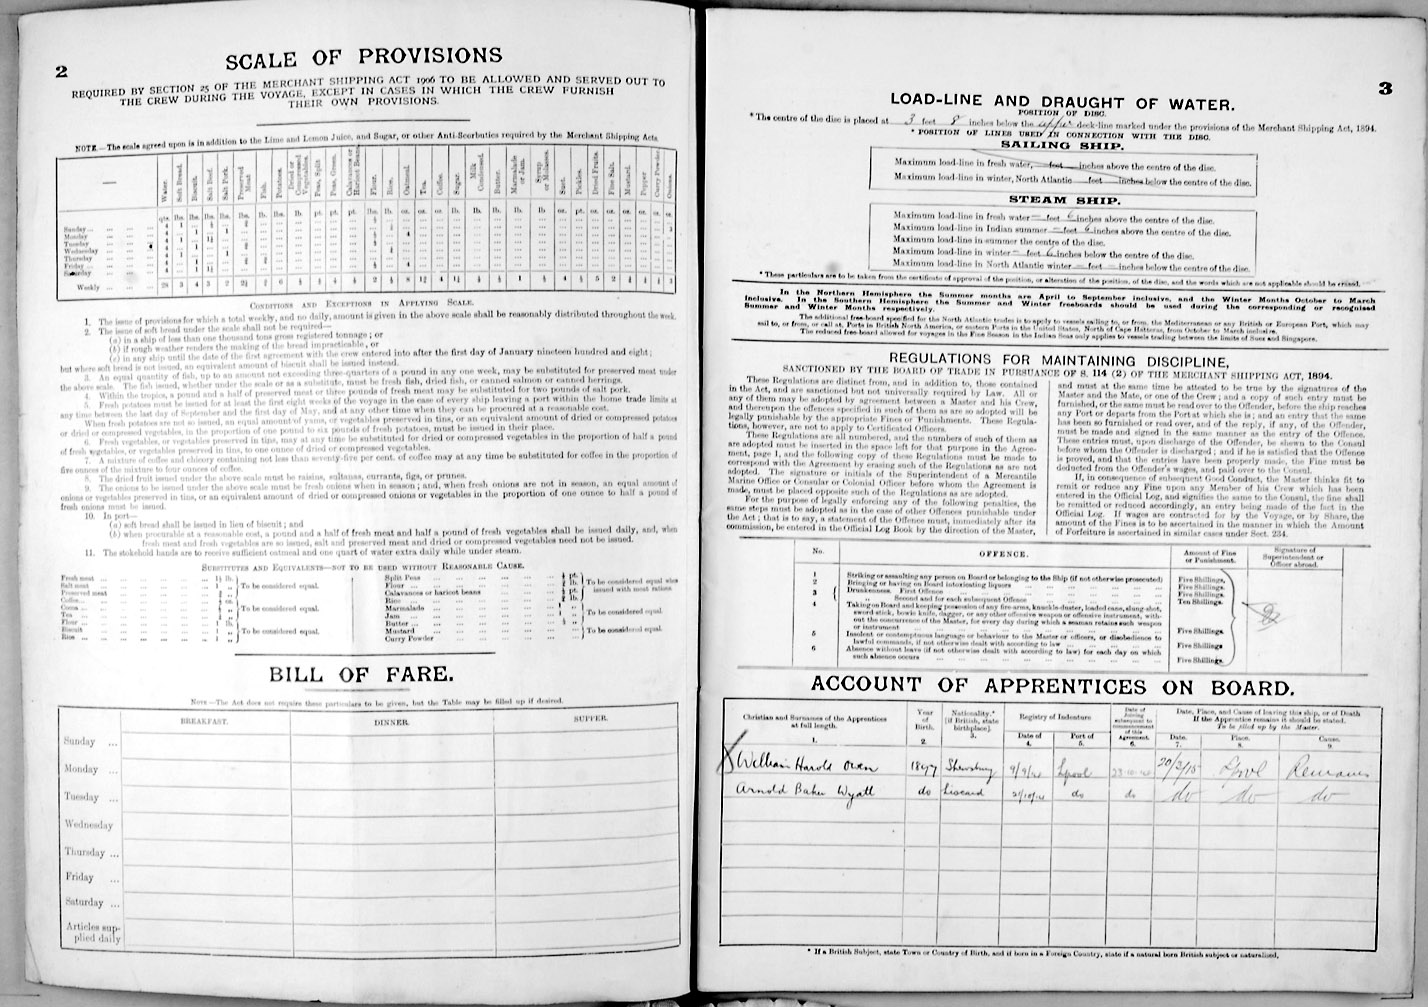 2
SCALE OF PROVISIONS
REQUIRED BY SECTION 25 OF THE MERCHANT SHIPPING ACT 1906 TO BE ALLOWED AND SERVED OUT TO
THE CREW DURING THE VOYAGE, EXCEPT IN CASES IN WHICH THE CREW FURNISH
THEIR OWN PROVISIONS.
NOTE.—The scale agreed upon is in addition to the Lime and Lemon Juice, and Sugar, or other Anti-Scorbutics required by the Merchant Shipping Acts.
Water. Soft Bread. Biscuit. Salt Beef. Salt Pork. Preserved Meat. Fish. Potatoes. Dried or Compressed Vegetables. Peas, Split. Peas, Green. Calavances or Haricot Beans. Flour. Rice. Oatmeal. Tea. Coffee. Sugar. Milk Condensed. Butter. Marmalade or Jam. Syrup or Molasses. Suet. Pickles. Dried Fruits. Fine Salt. Mustard. Pepper. Curry Powder. Onions.
Sunday
Monday
Tuesday
Wednesday
Thursday
Friday
Saturday
Weekly
CONDITIONS AND EXCEPTIONS IN APPLYING SCALE.
1. The issue of provisions for which a total weekly, and no daily, amount is given in the above scale shall be reasonably distributed throughout the week.
2. The issue of soft bread under the scale shall not be required—
(a) in a ship of less than one thousand tons gross registered tonnage; or
(b) if rough weather renders the making of the bread impracticable, or
(c) in any ship until the date of the first agreement with the crew entered into after the first day of January nineteen hundred and eight;
but where soft bread is not issued, an equivalent amount of biscuit shall be issued instead.
3. An equal quantity of fish, up to an amount not exceeding three-quarters of a pound in any one week, may be substituted for preserved meat under
the above scale. The fish issued, whether under the scale or as a substitute, must be fresh fish, dried fish, or canned salmon or canned herrings.
4. Within the tropics, a pound and a half of preserved meat or three pounds of fresh meat may be substituted for two pounds of salt pork.
5. Fresh potatoes must be issued for at least the first eight weeks of the voyage in the case of every ship leaving a port within the home trade limits at
any time between the last day of September and the first day of May, and at any other time when they can be procured at a reasonable cost.
When fresh potatoes are not so issued, an equal amount of yams, or vegetables preserved in tins, or an equivalent amount of dried or compressed potatoes
or dried or compressed vegetables, in the proportion of one pound to six pounds of fresh potatoes, must be issued in their place.
6. Fresh vegetables, or vegetables preserved in tins, may at any time be substituted for dried or compressed vegetables in the proportion of half a pound
of fresh vegetables, or vegetables preserved in tins, to one ounce of dried or compressed vegetables.
7. A mixture of coffee and chicory containing not less than seventy-five per cent. of coffee may at any time be substituted for coffee in the proportion of
five ounces of the mixture to four ounces of coffee.
8. The dried fruit issued under the above scale must be raisins, sultanas, currants, figs, or prunes.
9. The onions to be issued under the above scale must be fresh onions when in season; and, when fresh onions are not in season, an equal amount of
onions or vegetables preserved in tins, or an equivalent amount of dried or compressed onions or vegetables in the proportion of one ounce to half a pound of
fresh onions must be issued.
10. In port—
(a) soft bread shall be issued in lieu of biscuit; and
(b) when procurable at a reasonable cost, a pound and a half of fresh meat and half a pound of fresh vegetables shall be issued daily, and, when
fresh meat and fresh vegetables are so issued, salt and preserved meat and dried or compressed vegetables need not be issued.
11. The stokehold hands are to receive sufficient oatmeal and one quart of water extra daily while under steam.
SUBSTITUTES AND EQUIVALENTS—NOT TO BE USED WITHOUT REASONABLE CAUSE.
Fresh meat
Salt meat
Preserved meat
To be considered equal.
Coffee
Cocoa
Tea
To be considered equal.
Flour
Biscuit
Rice
To be considered equal.
Split Peas
Flour
Calavances or haricot beans
Rice
To be considered equal when
issued with meat rations
Marmalade
Jam
Butter
To be considered equal.
Mustard
Curry Powder
To be considered equal.
BILL OF FARE.
NOTE—The Act does not require these particulars to be given, but the Table may be filled up if desired.
BREAKFAST. DINNER. SUPPER.
Sunday ...
Monday ...
Tuesday ...
Wednesday
Thursday ...
Friday ...
Saturday ...
Articles sup-
plied daily
3
LOAD-LINE AND DRAUGHT OF WATER.
POSITION OF DISC.
* The centre of the disc is placed at 3 feet 8 inches below the upper deck-line marked under the provisions of the Merchant Shipping Act, 1894.
* POSITION OF LINES USED IN CONNECTION WITH THE DISC.
SAILING SHIP.
Maximum load-line in fresh water, feet inches above the centre of the disc.
Maximum load-line in winter, North Atlantic feet inches below the centre of the disc.
STEAM SHIP.
Maximum load-line in fresh water — feet 6 inches above the centre of the disc.
Maximum load-line in Indian summer — feet 6 inches above the centre of the disc.
Maximum load-line in summer the centre of the disc.
Maximum load-line in winter — feet 6 inches below the centre of the disc.
Maximum load-line in North Atlantic winter — feet — inches below the centre of the disc.
* These particulars are to be taken from the certificate of approval of the position, or alteration of the position, of the disc, and the words which are not applicable should be erased.
In the Northern Hemisphere the Summer months are April to September inclusive, and the Winter Months October to March
inclusive. In the Southern Hemisphere the Summer and Winter freeboards should be used during the corresponding or recognised
Summer and Winter Months respectively.
The additional free-board specified for the North Atlantic trades is to apply to vessels sailing to, or from, the Mediterranean or any British or European Port, which may
sail to, or from, or call at, Ports in British North America, or eastern Ports in the United States, North of Cape Hatteras, from October to March inclusive.
The reduced free-board allowed for voyages in the Fine Season in the Indian Seas only applies to vessels trading between the limits of Suez and Singapore.
REGULATIONS FOR MAINTAINING DISCIPLINE,
SANCTIONED BY THE BOARD OF TRADE IN PURSUANCE OF S. 114 (2) OF THE MERCHANT SHIPPING ACT, 1894.
These Regulations are distinct from, and in addition to, those contained
in the Act, and are sanctioned but not universally required by Law. All or
any of them may be adopted by agreement between a Master and his Crew,
and thereupon the offences specified in such of them as are so adopted will be
legally punishable by the appropriate Fines or Punishments. These Regula-
tions, however, are not to apply to Certificated Officers.
These Regulations are all numbered, and the numbers of such of them as
are adopted must be inserted in the space left for that purpose in the Agree-
ment, page 1, and the following copy of these Regulations must be made to
correspond with the Agreement by erasing such of the Regulations as are not
adopted. The signature or initials of the Superintendent of a Mercantile
Marine Office or Consular or Colonial Officer before whom the Agreement is
made, must be placed opposite such of the Regulations as are adopted.
For the purpose of legally enforcing any of the following penalties, the
same steps must be adopted as in the case of other Offences punishable under
the Act; that is to say, a statement of the Offence must, immediately after its
commission, be entered in the Official Log Book by the direction of the Master,
and must at the same time be attested to be true by the signatures of the
Master and the Mate, or one of the Crew; and a copy of such entry must be
furnished, or the same must be read over to the Offender, before the ship reaches
any Port or departs from the Port at which she is; and an entry that the same
has been so furnished or read over, and of the reply, if any, of the Offender,
must be made and signed in the same manner as the entry of the Offence.
These entries must, upon discharge of the Offender, be shewn to the Consul
before whom the Offender is discharged; and if he is satisfied that the Offence
is proved, and that the entries have been properly made, the Fine must be
deducted from the Offender's wages, and paid over to the Consul.
If, in consequence of subsequent Good Conduct, the Master thinks fit to
remit or reduce any Fine upon any Member of his Crew which has been
entered in the Official Log, and signifies the same to the Consul, the fine shall
be remitted or reduced accordingly, an entry being made of the fact in the
Official Log. If wages are contracted for by the Voyage, or by Share, the
amount of the Fines is to be ascertained in the manner in which the Amount
of Forfeiture is ascertained in similar cases under Sect. 234.
No. OFFENCE. Amount of Fine or Punishment. Signature of Superintendent or Officer abroad.
1 Striking or assaulting any person on Board or belonging to the Ship (if not otherwise prosecuted) Five Shillings.
2 Bringing or having on Board intoxicating liquors Five Shillings.
3 Drunkenness. First Offence Five Shillings.
„ Second and for each subsequent Offence Ten Shillings.
4 Taking on Board and keeping possession of any fire-arms, knuckle-duster, loaded cane, slung-shot,
sword-stick, bowie knife, dagger, or any other offensive weapon or offensive instrument, with-
out the concurrence of the Master, for every day during which a seaman retains such weapon
or instrument Five Shillings.
5 Insolent or contemptuous language or behaviour to the Master or officers, or disobedience to
lawful commands, if not otherwise dealt with according to law Five Shillings
6 Absence without leave (if not otherwise dealt with according to law) for each day on which
such absence occurs Five Shillings.
ACCOUNT OF APPRENTICES ON BOARD.
Christian and Surnames of the Apprentices at full length. Year of Birth. Nationality.* [if British, state birthplace]. Registry of Indenture Date of Port of Date of Joining subsequent to commencement of this Agreement. Date, Place, and Cause of leaving this ship, or of Death
If the Apprentice remains it should be stated.
To be filled up by the Master.
Date. Place. Cause.
1. 2. 3. 4. 5. 6. 7. 8. 9.
William Harold Owen 1897 Shrewsbury 9/9/14 Lpool 20/2/15 Lpool Remains
Arnold Baker Wyatt do Liscard 21/10/14 do do do do do
* If a British Subject, state Town or Country of Birth, and if born in a Foreign Country, state if a natural born British subject or naturalized.